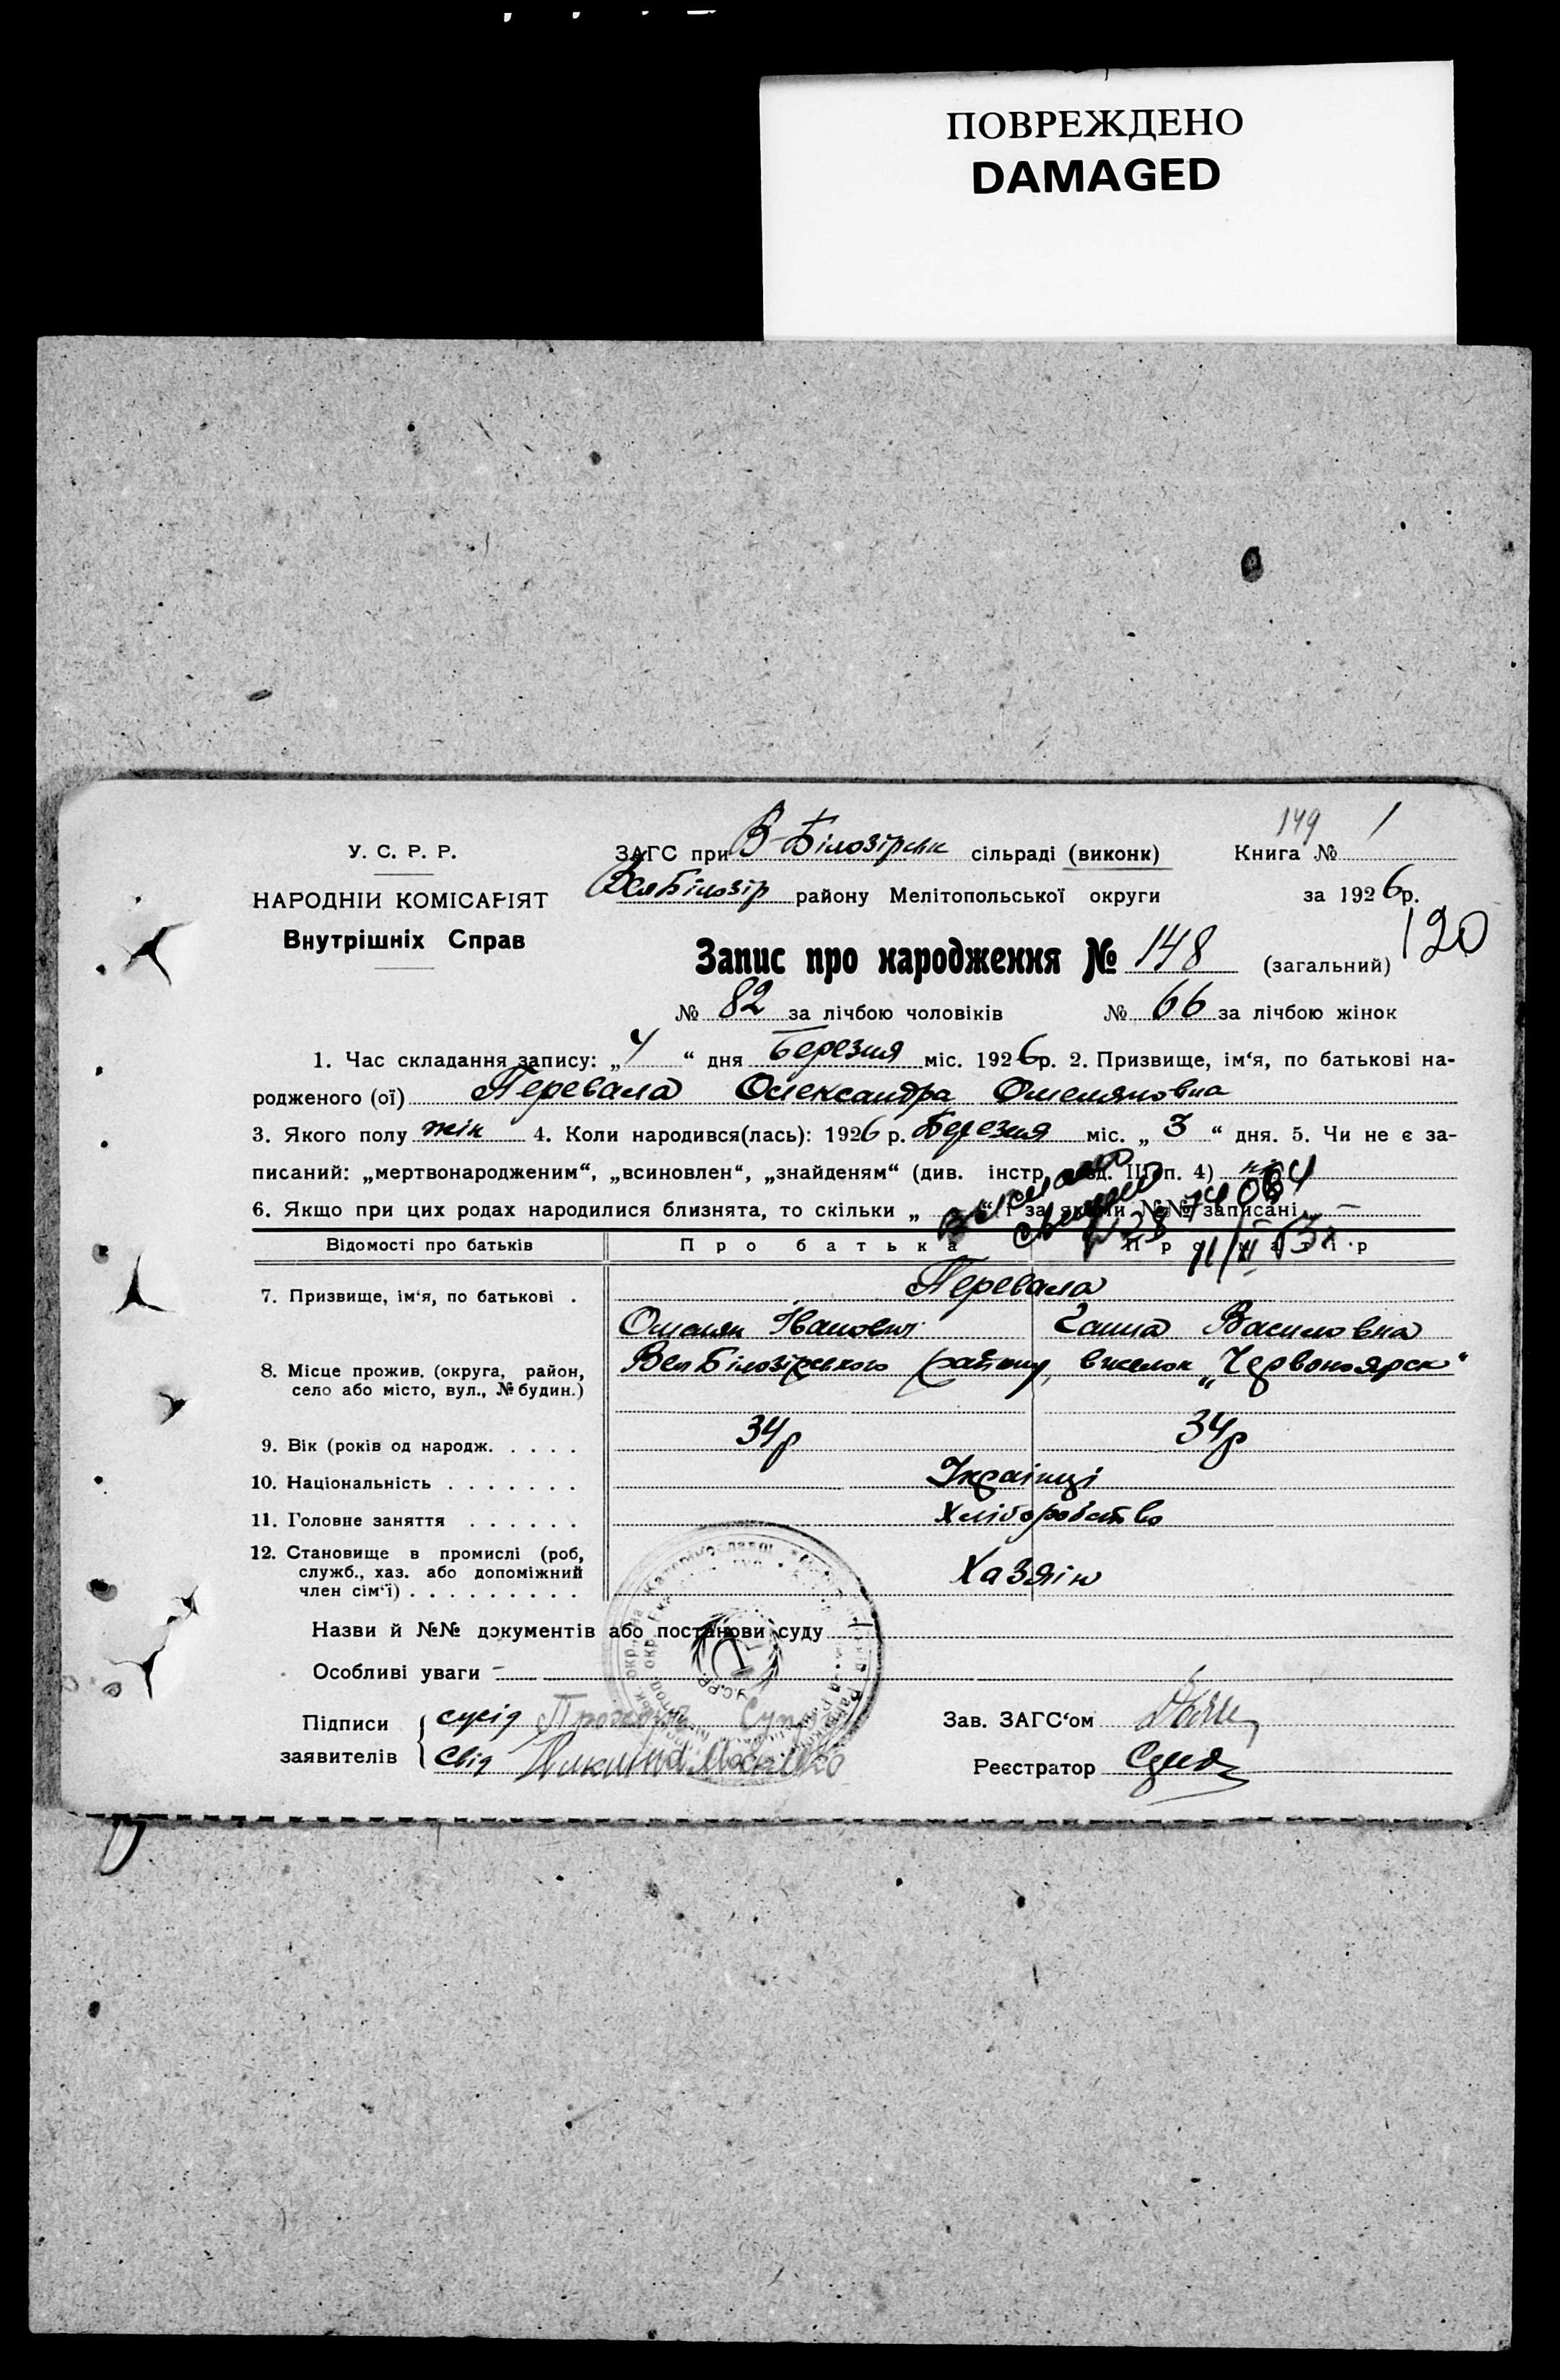 ПОВРЕЖДЕНО
DAMAGED
149 1
У. С. Р. Р. ЗАГС при В-Білозірськ сільраді (виконк) Книга №
НАРОДНІЙ КОМІСАРІЯТ ВелБілозір району Мелітопольської округи за 1926 р.
Внутрішніх Справ
120
Запис про народження № 148 (загальний)
№ 82 за лічбою чоловіків № 66 за лічбою жінок
1. Час складання запису: „4“ дня Березня міс. 1926 р. 2. Призвище, ім‘я, по батькові на-
родженого (ої) Перевала Олександра Омеляновна
3. Якого полу жін 4. Коли народився(лась): 1926 р. Березня міс. „3“ дня. 5. Чи не є за-
писаний: „мертвонародженим“, „всиновлен“, „знайденям“ (див. інстр. розд. III п. 4) ні
6. Якщо при цих родах народилися близнята, то скільки „ “ і за якими №№ записані —
Відомості про батьків Про батька Про матір
7. Призвище, ім‘я, по батькові . Перевала
Омелян Іванович Ганна Василовна
8. Місце прожив. (округа, район, ВелБілозірського району, виселок „Червоноярск“
село або місто, вул., № будин.)
9. Вік (років од народж. . . . . 34р 34р
10. Національність . . . . . . . Українці
11. Головне заняття . . . . . . Хліборобство
12. Становище в промислі (роб, Хазяїн
служб., хаз. або допоміжний
член сім‘ї) . . . . . . . . .
Назви й №№ документів або постанови суду
Особливі уваги –
Підписи сусід Зав. ЗАГС‘ом
заявителів свід Реєстратор
У.С.Р.Р.